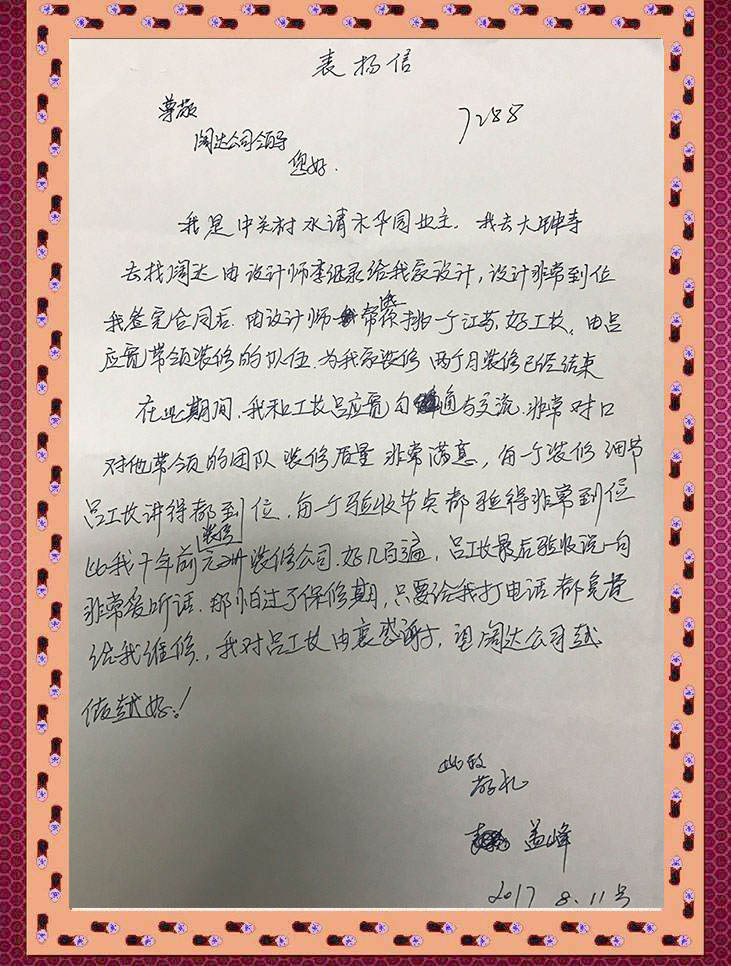 表扬信
尊敬
7288
阔达公司领导
您好.
我是中关村水清木华园业主. 我去大钟寺
去找阔达由设计师李继录给我家设计,设计非常到位
我签完合同后.由设计师帮安排一个江苏.好工长.由吕
应宽带领装修的队伍.为我家装修 两个月装修已经结束
在此期间,我和工长吕应宽勾通与交流.非常对口
对他带领的团队 装修质量 非常满意,每一个装修细节
吕工长讲得都到位.每一个验收节点都验得非常到位
比我十年前元洲装修装修公司.好几百遍,吕工长最后验收说一句
非常爱听话.那怕过了保修期,只要给我打电话都免费
给我维修.,我对吕工长由衷感谢,望阔达公司越
做越好!
此致
敬礼
盖峰
2017 8.11号